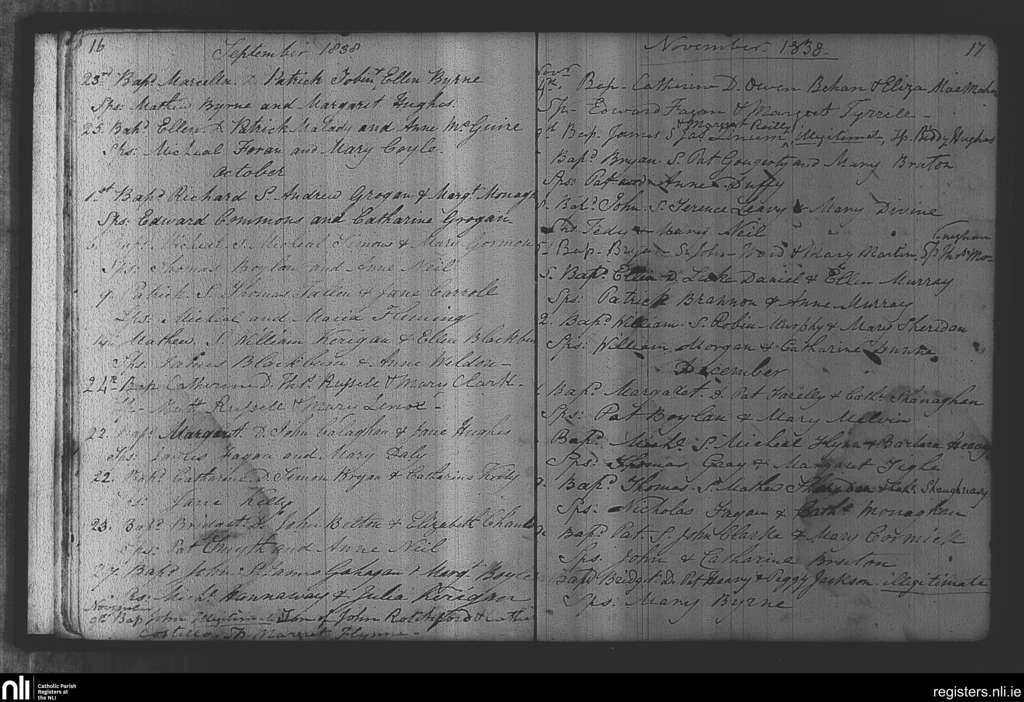 16
September 1838
23rd Bapd Marcella D. Patrick Tobin & Ellen Byrne
Sps: Mathew Byrne and Margaret Hughes.
25 Bapd Ellen D. Patrick Malady and Anne McGuire
Sps: Micheal Foran and Mary Coyle.
October
1st Bapd Richard S. Andrew Grogan & Margt Monagh
Sps: Edward Commons and Catharine Grogan
6 Bapd Micheal S. Micheal Timons & Mary Gormon
Sps: Thomas Boylan and Anne Neil
9. Patrick S. Thomas & Jane Carroll
Sps: Micheal and Maria Fleming
14. Mathew S. William Kerigan & Ellen Blackbur
Sps: James Blackburn & Anne Weldon
24th Bap Catherine D. Pat. Russele & Mary Clark
Sp- Matt Russele & Mary Lenox -
22. Bapd Margaret D. John Calaghan & Jane Hughes
Sps: James Fagan and Mary Daly
22. Bapd Catharine D. Simon Hogan & Catharine
Sp: Jane Kelly
23. Bapd Bridget D. John Bolton & Elizabeth
Sps: Pat Smyth and Anne Neil
27. Bapd John S. James Gahagan & Margt Boyle
Sps: Michl Hannaway & Julia Kerigan
November
9th Bap John illegitimate Son of John Rotchford & Cathe
Costillo Sp Margret Flynne -
November 1838.
17
Novr
4th. Bap- Catherin D. Owen Behan & Eliza MacMahon
Sp- Edward Fagan & Margret Tyrrele -
& Margret Reilly
9th Bap. James S. Jas illegitimate, Sp. Biddy Hughes
Bapd Bryan S. Pat Gougerty and Mary Bruton
Sps: Pat and Anne Duffy
Bapd John S. Terence Leavy & Mary Divine
Sps Tedy & Neil
5. Bap- Bryan S. John Ward & Mary Martin Sps Thos Mo-
naghan
5. Bapd Ellen D. Luke Daniel & Ellen Murray
Sps: Patrick Brannon & Anne Murray
2. Bapd William S. Robin Murphy & Mary Sheridan
Sps: William Morgan & Catharine Dunne
December
Bapd Margaret D. Pat Farelly & Cath Shanaghan
Sps: Pat Boylan & Mary Melvin
Bapd Michl. S. Micheal Flynn & Barbara Heavy
Sps: Thomas Gray & Margaret Tigh
9. Bapd Thomas S. Mathew Sheridan & Cath Shaughnasy
Sps: Nicholas Fagan & Cathe Monaghan
Bapd Pat. S. John Clarke & Mary Cormick
Sps: John & Catharine Bruton
Bapd Bridget D. Pat Heavy & Peggy Jackson illegitimate
Sps: Mary Byrne
nli
Catholic Parish
Registers at
the NLI
registers.nli.ie